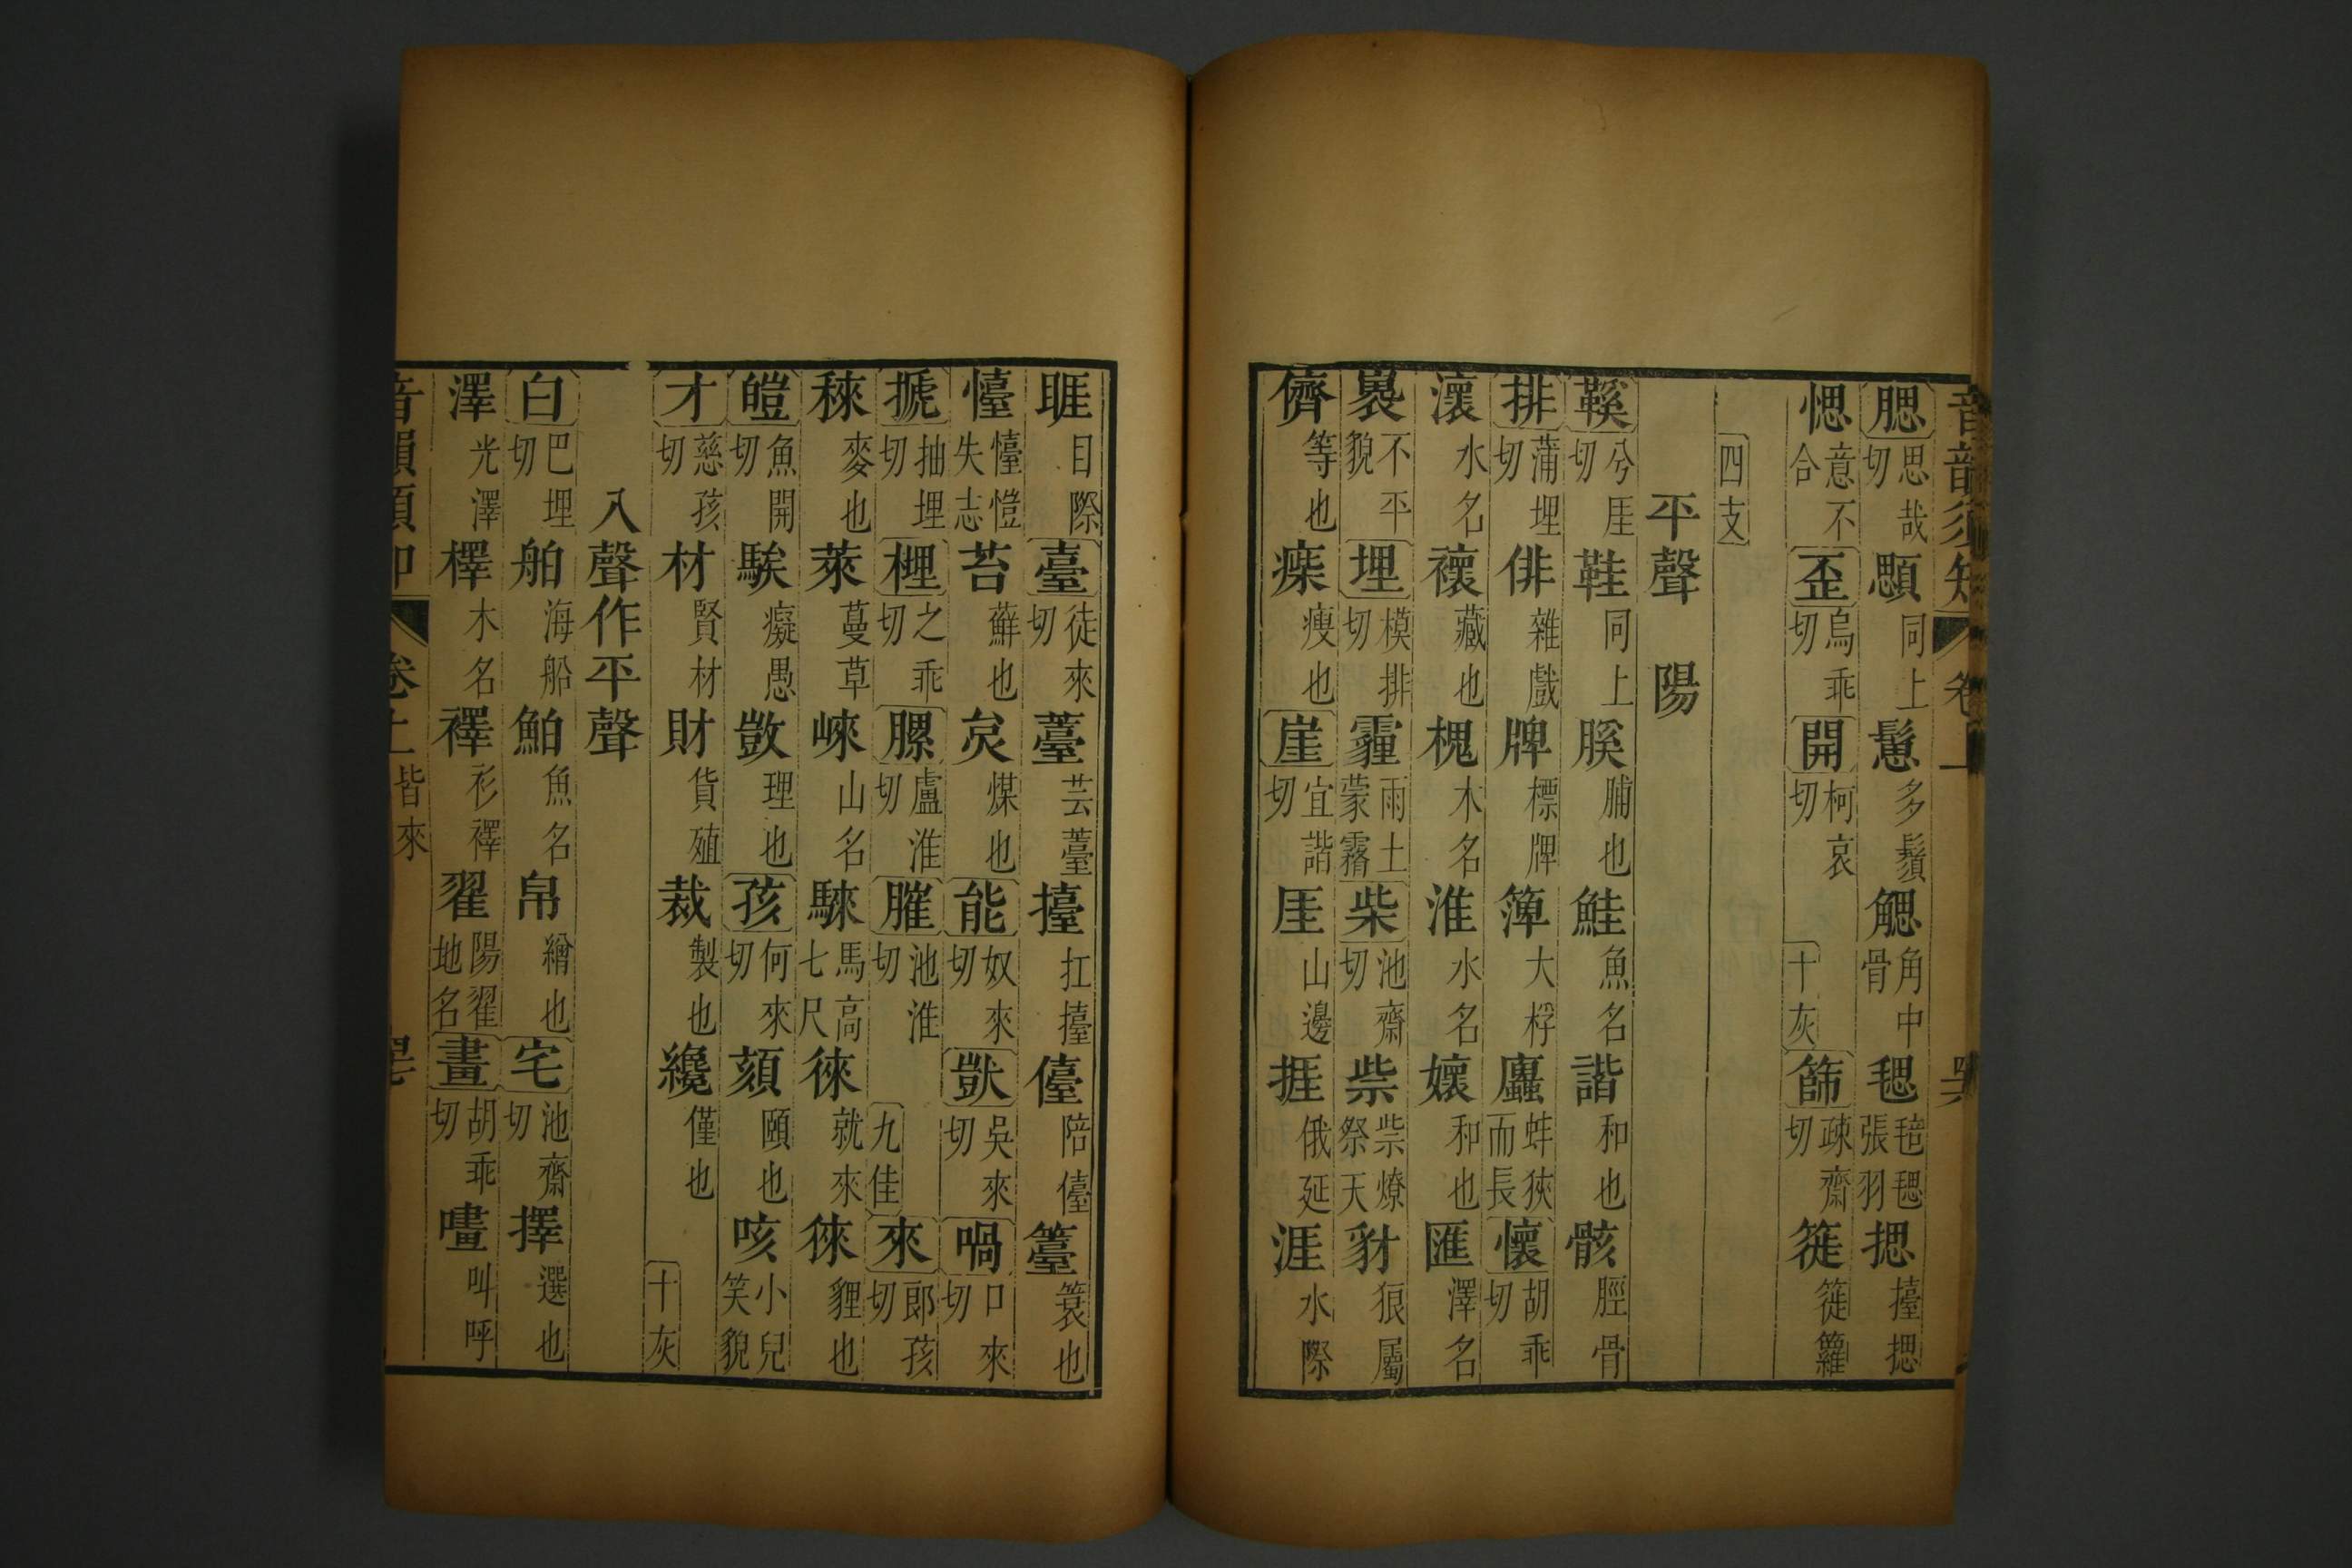 音韻須知 卷上 
腮思哉切顋同上鬛多鬚䚡角中骨毸毰毸張羽揌擡揌
愢意不合歪烏乖切開柯哀切十灰篩疎齋切簁簁籮
四支
平聲 陽
鞵兮厓切鞋同上膎脯也鮭魚名諧和也骸脛骨
排蒲埋切俳雜戲牌標牌簰大桴蠯蚌狹而長懷胡乖切
瀼水名褱藏也槐木名淮水名孃和也匯澤名
裏不平貌埋模排切霾雨土蒙霧柴池齋切祡祡燎祭天豺狼屬
儕等也瘵瘦也崖宜諧切厓山邊捱俄延涯水際
睚目際臺徒來切薹芸薹擡扛擡儓陪儓籉簑也
懛懛愷失志苔蘚也炱煤也能奴來切獃吳來切喎口來切
搋抽埋切榸之乖切膘盧淮切膗池淮切九佳來郎孩切
秾麥也萊蔓草崍山名騋馬高七尺徠就來徠貍也
皚魚開切騃癡愚敳理也孩何來切頦頤也咳小兒笑貌
才慈孩切材賢材財貨殖裁製也纔僅也十灰
入聲作平聲
白巴埋切舶海船鮊魚名帛繒也宅池齋切擇選也
澤光澤檡木名襗衫襗翟陽翟地名畫胡乖切嚍叫呼
音韻須知 卷上 皆來